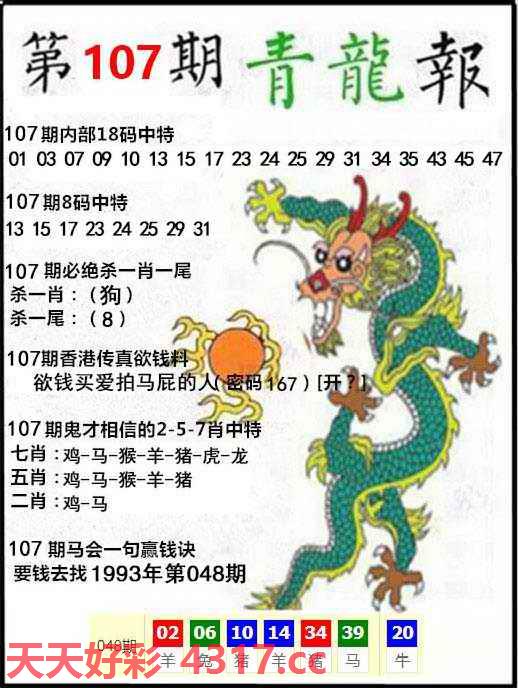 第107期青龍報
107期内部18码中特
01 03 07 09 10 13 15 17 23 24 25 29 31 34 35 43 45 47
107期8码中特
13 15 17 23 24 25 29 31
107期必绝杀一肖一尾
杀一肖：（狗）
杀一尾：（8）
107期香港传真欲钱料
欲钱买爱拍马屁的人(密码167)[开？]
107期鬼才相信的2-5-7肖中特
七肖：鸡-马-猴-羊-猪-虎-龙
五肖：鸡-马-猴-羊-猪
二肖：鸡-马
107期马会一句赢钱诀
要钱去找1993年第048期
048期 02 06 10 14 34 39 20
羊 兔 猪 羊 猪 马 牛
天天好彩 4317.cc